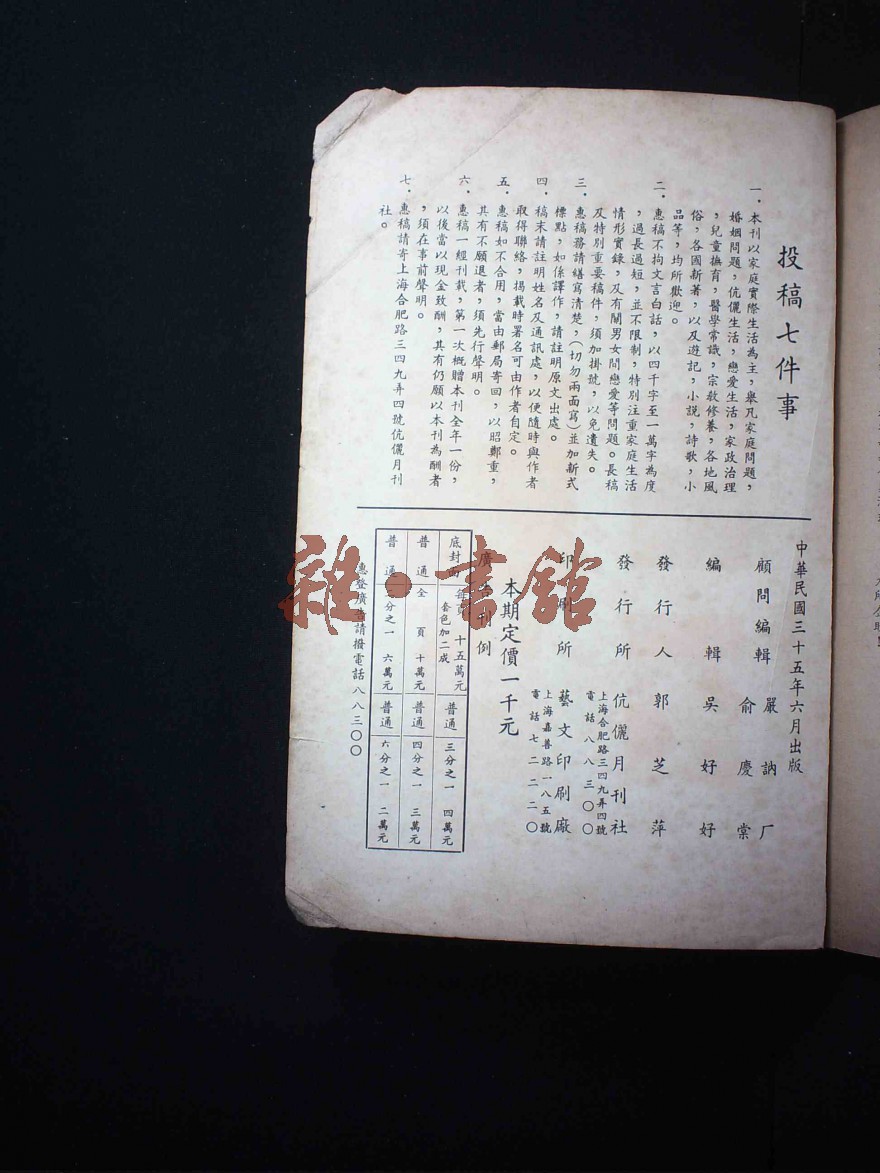 投稿七件事
一．本刊以家庭實際生活為主，舉凡家庭問題，
婚姻問題，伉儷生活，戀愛生活，家政治理
，兒童撫育，醫學常識，宗教修養，各地風
俗，各國新著，以及遊記，小說，詩歌，小
品等，均所歡迎。
二．惠稿不拘文言白話，以四千字至一萬字為度
，過長過短，並不限制，特別注重家庭生活
情形實錄，及有關男女間戀愛等問題。長稿
及特別重要稿件，須加掛號，以免遺失。
三．惠稿務請繕寫清楚，（切勿兩面寫）並加新式
標點，如係譯作，請註明原文出處。
四．稿末請註明姓名及通訊處，以便隨時與作者
取得聯絡，揭載時署名可由作者自定。
五．惠稿如不合用，當由郵局寄回，以昭鄭重，
其有不願退者，須先行聲明。
六．惠稿一經刊載，第一次概贈本刊全年一份，
以後當以現金致酬，其有仍願以本刊為酬者
，須在事前聲明。
七．惠稿請寄上海合肥路三四九弄四號伉儷月刊
社。
中華民國三十五年六月出版
顧問編輯 嚴諤厂
俞慶棠
編輯 吳好好
發行人 郭芝萍
發行所 伉儷月刊社
上海合肥路三四九弄四號
電話八八三〇〇
印刷所 藝文印刷廠
上海嘉善路一八五號
電話七二二二〇
本期定價一千元
廣告刊例
底封面 每頁 十五萬元
套色加二成
普通 三分之一 四萬元
普通 全頁 十萬元 普通 四分之一 三萬元
普通 二分之一 六萬元 普通 六分之一 二萬元
惠登廣告請撥電話八八三〇〇
雜·書館